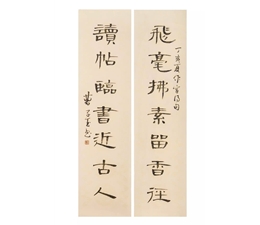 飛毫拂素留香徑
讀帖臨書近古人